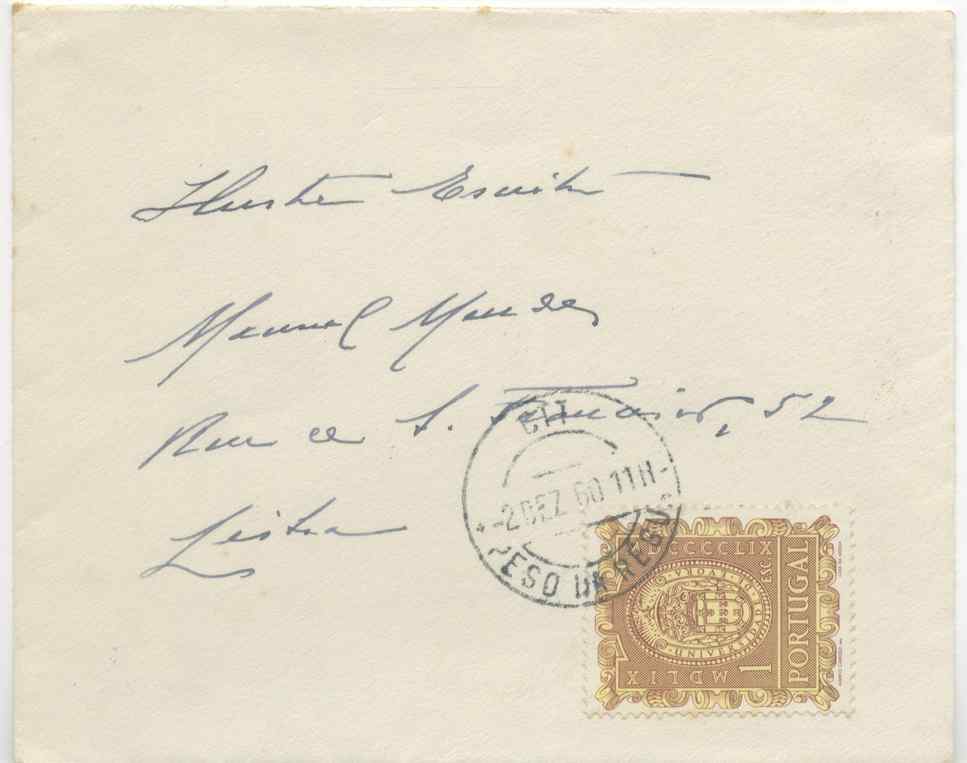 Ilustre Escritor
Manuel Mendes
Rua de S. Francisco, 52
Lisboa
CTT
-2 DEZ 60 11H-
PESO DA REGUA
MDCCCCLIX
UNIVERSIDADE DE EVORA
MDLIX
1 ESC
PORTUGAL